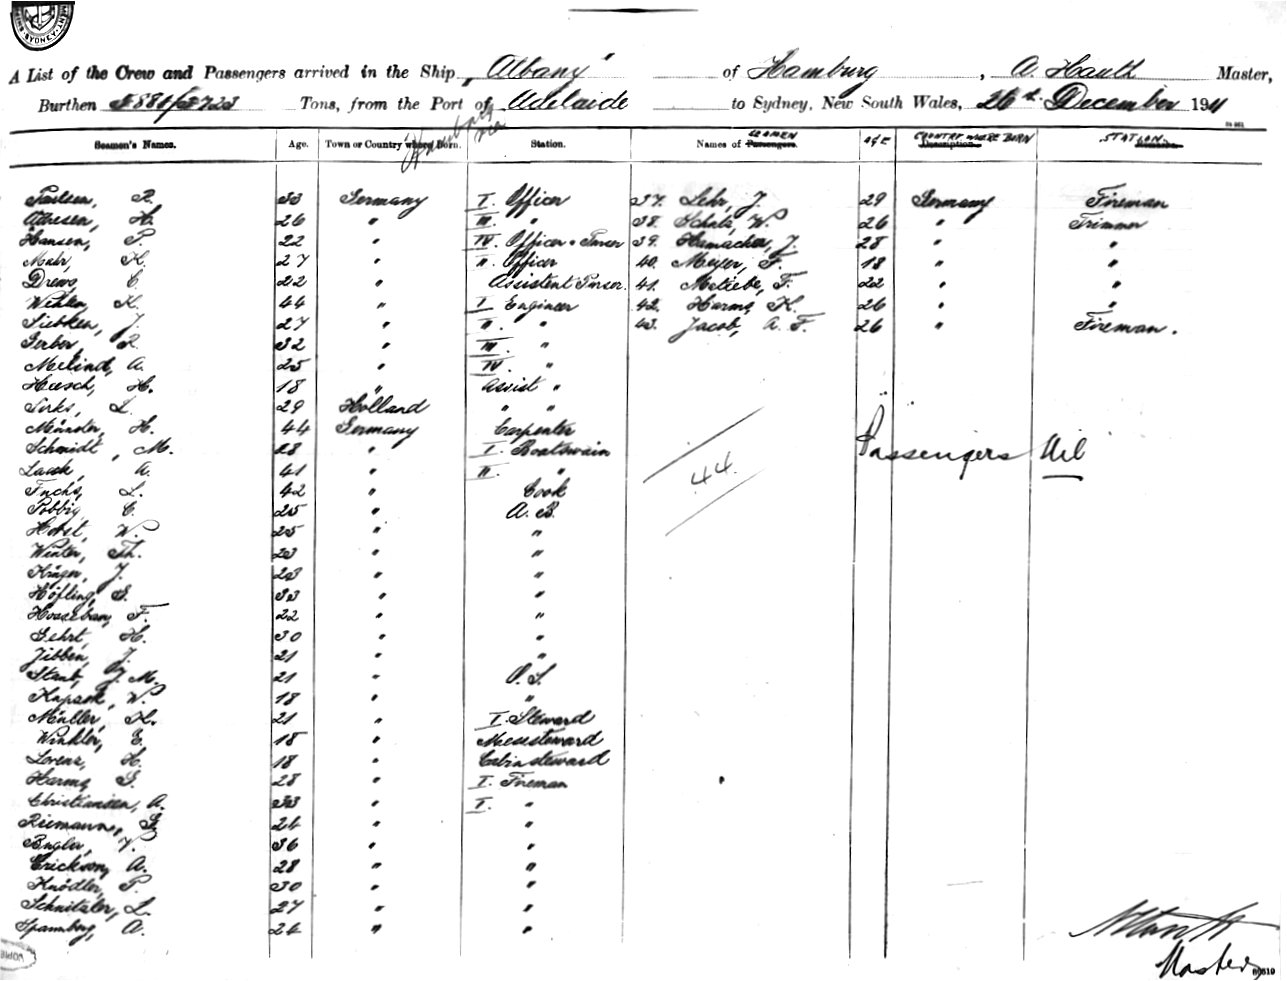 SYDNEY
A List of the Crew and Passengers arrived in the Ship "Albany" of Hamburg, A. Hauth Master,
Burthen Tons, from the Port of Adelaide to Sydney, New South Wales, 26th December 1911
Seamen's Names. Age. Town or Country where Born. Station. Names of Passengers. SEAMEN AGE Description. COUNTRY WHERE BORN STATION
Paulsen, R. 33 Germany I. Officer 37. Lehr, J. 29 Germany Fireman
H. 26 " III. " 38. Schulz, W. 26 " Trimmer
Hansen, P. 22 " IV. Officer + Purser 39. Hamacher, J. 28 " "
Mahr, K. 27 " II. Officer 40. Meyer, F. 18 " "
Drews, C. 22 " Assistent Purser. 41. F. 22 " "
K. 44 " I Engineer 42. Harms, K. 26 " "
Siebken, J. 27 " II. " 43. Jacob, A. F. 26 " Fireman.
Gerber, R. 32 " III. "
A. 25 " IV. "
Heesch, H. 18 " Assist "
L. 29 Holland " "
Münster, H. 44 Germany Carpenter
Schmidt, M. 28 " I. Boatswain
A. 41 " II. "
Passengers Nil
44.
Fuchs, L. 42 " Cook
C. 25 " A. B.
Horst, W. 25 " "
Winter, Th. 23 " "
Krüger, J. 23 " "
Höfling, G. 33 " "
F. 22 " "
Gehrt, H. 30 " "
Jibben, J. 21 " "
Staub, J. M. 21 " O. S.
W. 18 " "
Müller, K. 21 " I. Steward
Winkler, E. 18 " Messsteward
Lorenz, H. 18 " Cabinsteward
Harms, G. 28 " I. Fireman
Christiansen, A. 33 " I. "
Riemann, G. 24 " "
V. 36 " "
Erickson, A. 28 " "
Knödler, P. 30 " "
Schnitzler, L. 27 " "
A. 24 " "
Master